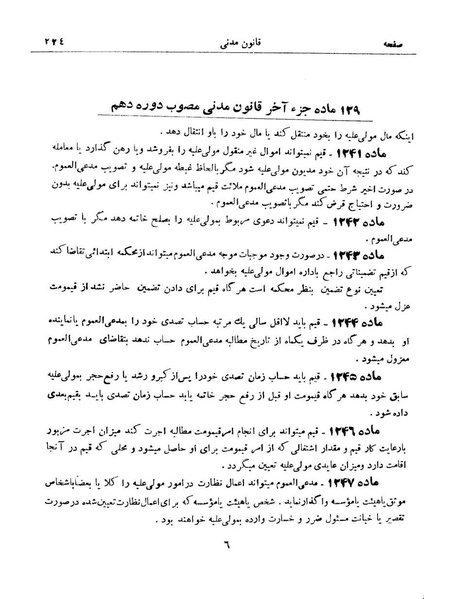 صفحه قانون مدنی ۲۲٤
۱۳۹ ماده جزء آخر قانون مدنی مصوب دوره دهم
اینکه مال مولی‌علیه را بخود منتقل کند یا مال خود را باو انتقال دهد .
ماده ۱۲۴۱ - قیم نمیتواند اموال غیر منقول مولی‌علیه را بفروشد ویا رهن گذارد یا معامله
کند که در نتیجه آن خود مدیون مولی‌علیه شود مگر بالحاظ غبطه مولی‌علیه و تصویب مدعی‌العموم.
در صورت اخیر شرط حتمی تصویب مدعی‌العموم ملائت قیم میباشد ونیز نمیتواند برای مولی‌علیه بدون
ضرورت و احتیاج قرض کند مگر باتصویب مدعی‌العموم .
ماده ۱۲۴۲ - قیم نمیتواند دعوی مربوط بمولی‌علیه را بصلح خاتمه دهد مگر با تصویب
مدعی‌العموم .
ماده ۱۲۴۳ - درصورت وجود موجبات موجه مدعی‌العموم میتواند ازمحکمه ابتدائی تقاضا کند
که ازقیم تضمیناتی راجع باداره اموال مولی‌علیه بخواهد .
تعیین نوع تضمین بنظر محکمه است هر گاه قیم برای دادن تضمین حاضر نشد از قیمومت
عزل میشود .
ماده ۱۲۴۴ - قیم باید لااقل سالی یك مرتبه حساب تصدی خود را بمدعی‌العموم یانماینده
او بدهد و هر گاه در ظرف یکماه از تاریخ مطالبه مدعی‌العموم حساب ندهد بتقاضای مدعی‌العموم
معزول میشود .
ماده ۱۲۴۵ - قیم باید حساب زمان تصدی خودرا پس‌از کبر و رشد یا رفع حجر بمولی‌علیه
سابق خود بدهد هر گاه قیمومت او قبل از رفع حجر خاتمه یابد حساب زمان تصدی بایـد بقیم‌بعدی
داده شود .
ماده ۱۲۴۶ - قیم میتواند برای انجام امرقیمومت مطالبه اجرت کند میزان اجرت مزبور
بارعایت کار قیم و مقدار اشتغالی که از امر قیمومت برای او حاصل میشود و محلی که قیم در آنجا
اقامت دارد ومیزان عایدی مولی‌علیه تعیین میگردد .
ماده ۱۲۴۷ - مدعی‌العموم میتواند اعمال نظارت درامور مولی‌علیه را کلا یا بعضاباشخاص
موثق‌یاهیئت یامؤسسه واگذارنماید . شخص یاهیئت یامؤسسه که برای‌اعمال نظارت‌تعیین‌شده درصورت
تقصیر یا خیانت مسئول ضرر و خسارت وارده بمولی‌علیه خواهند بود .
٦